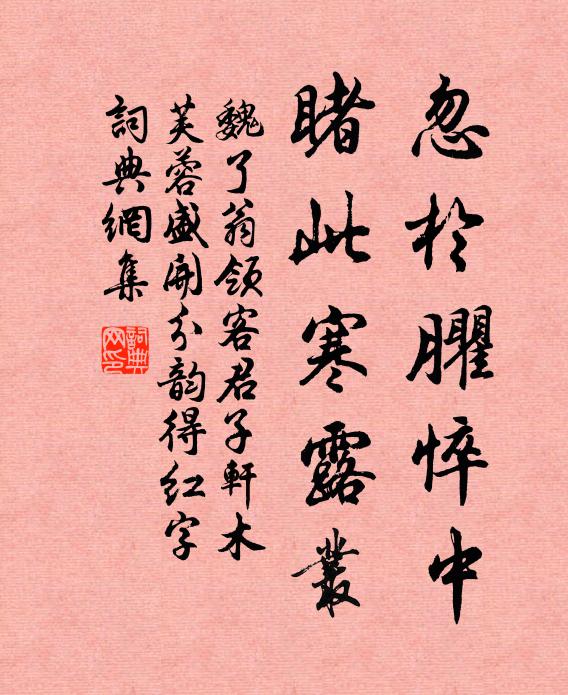 忽於臞悴中
睹此寒露叢
魏了翁領客君子軒木
芙蓉盛開分韵得红字
詞典網集
詞典网印